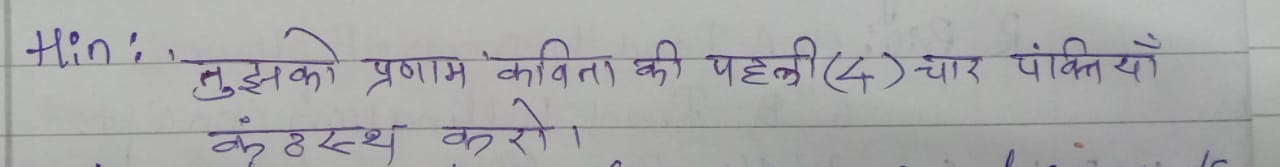 Hin: 'तुझको प्रणाम' कविता की पहली (4) चार पंक्तियाँ
कंठस्थ करो।